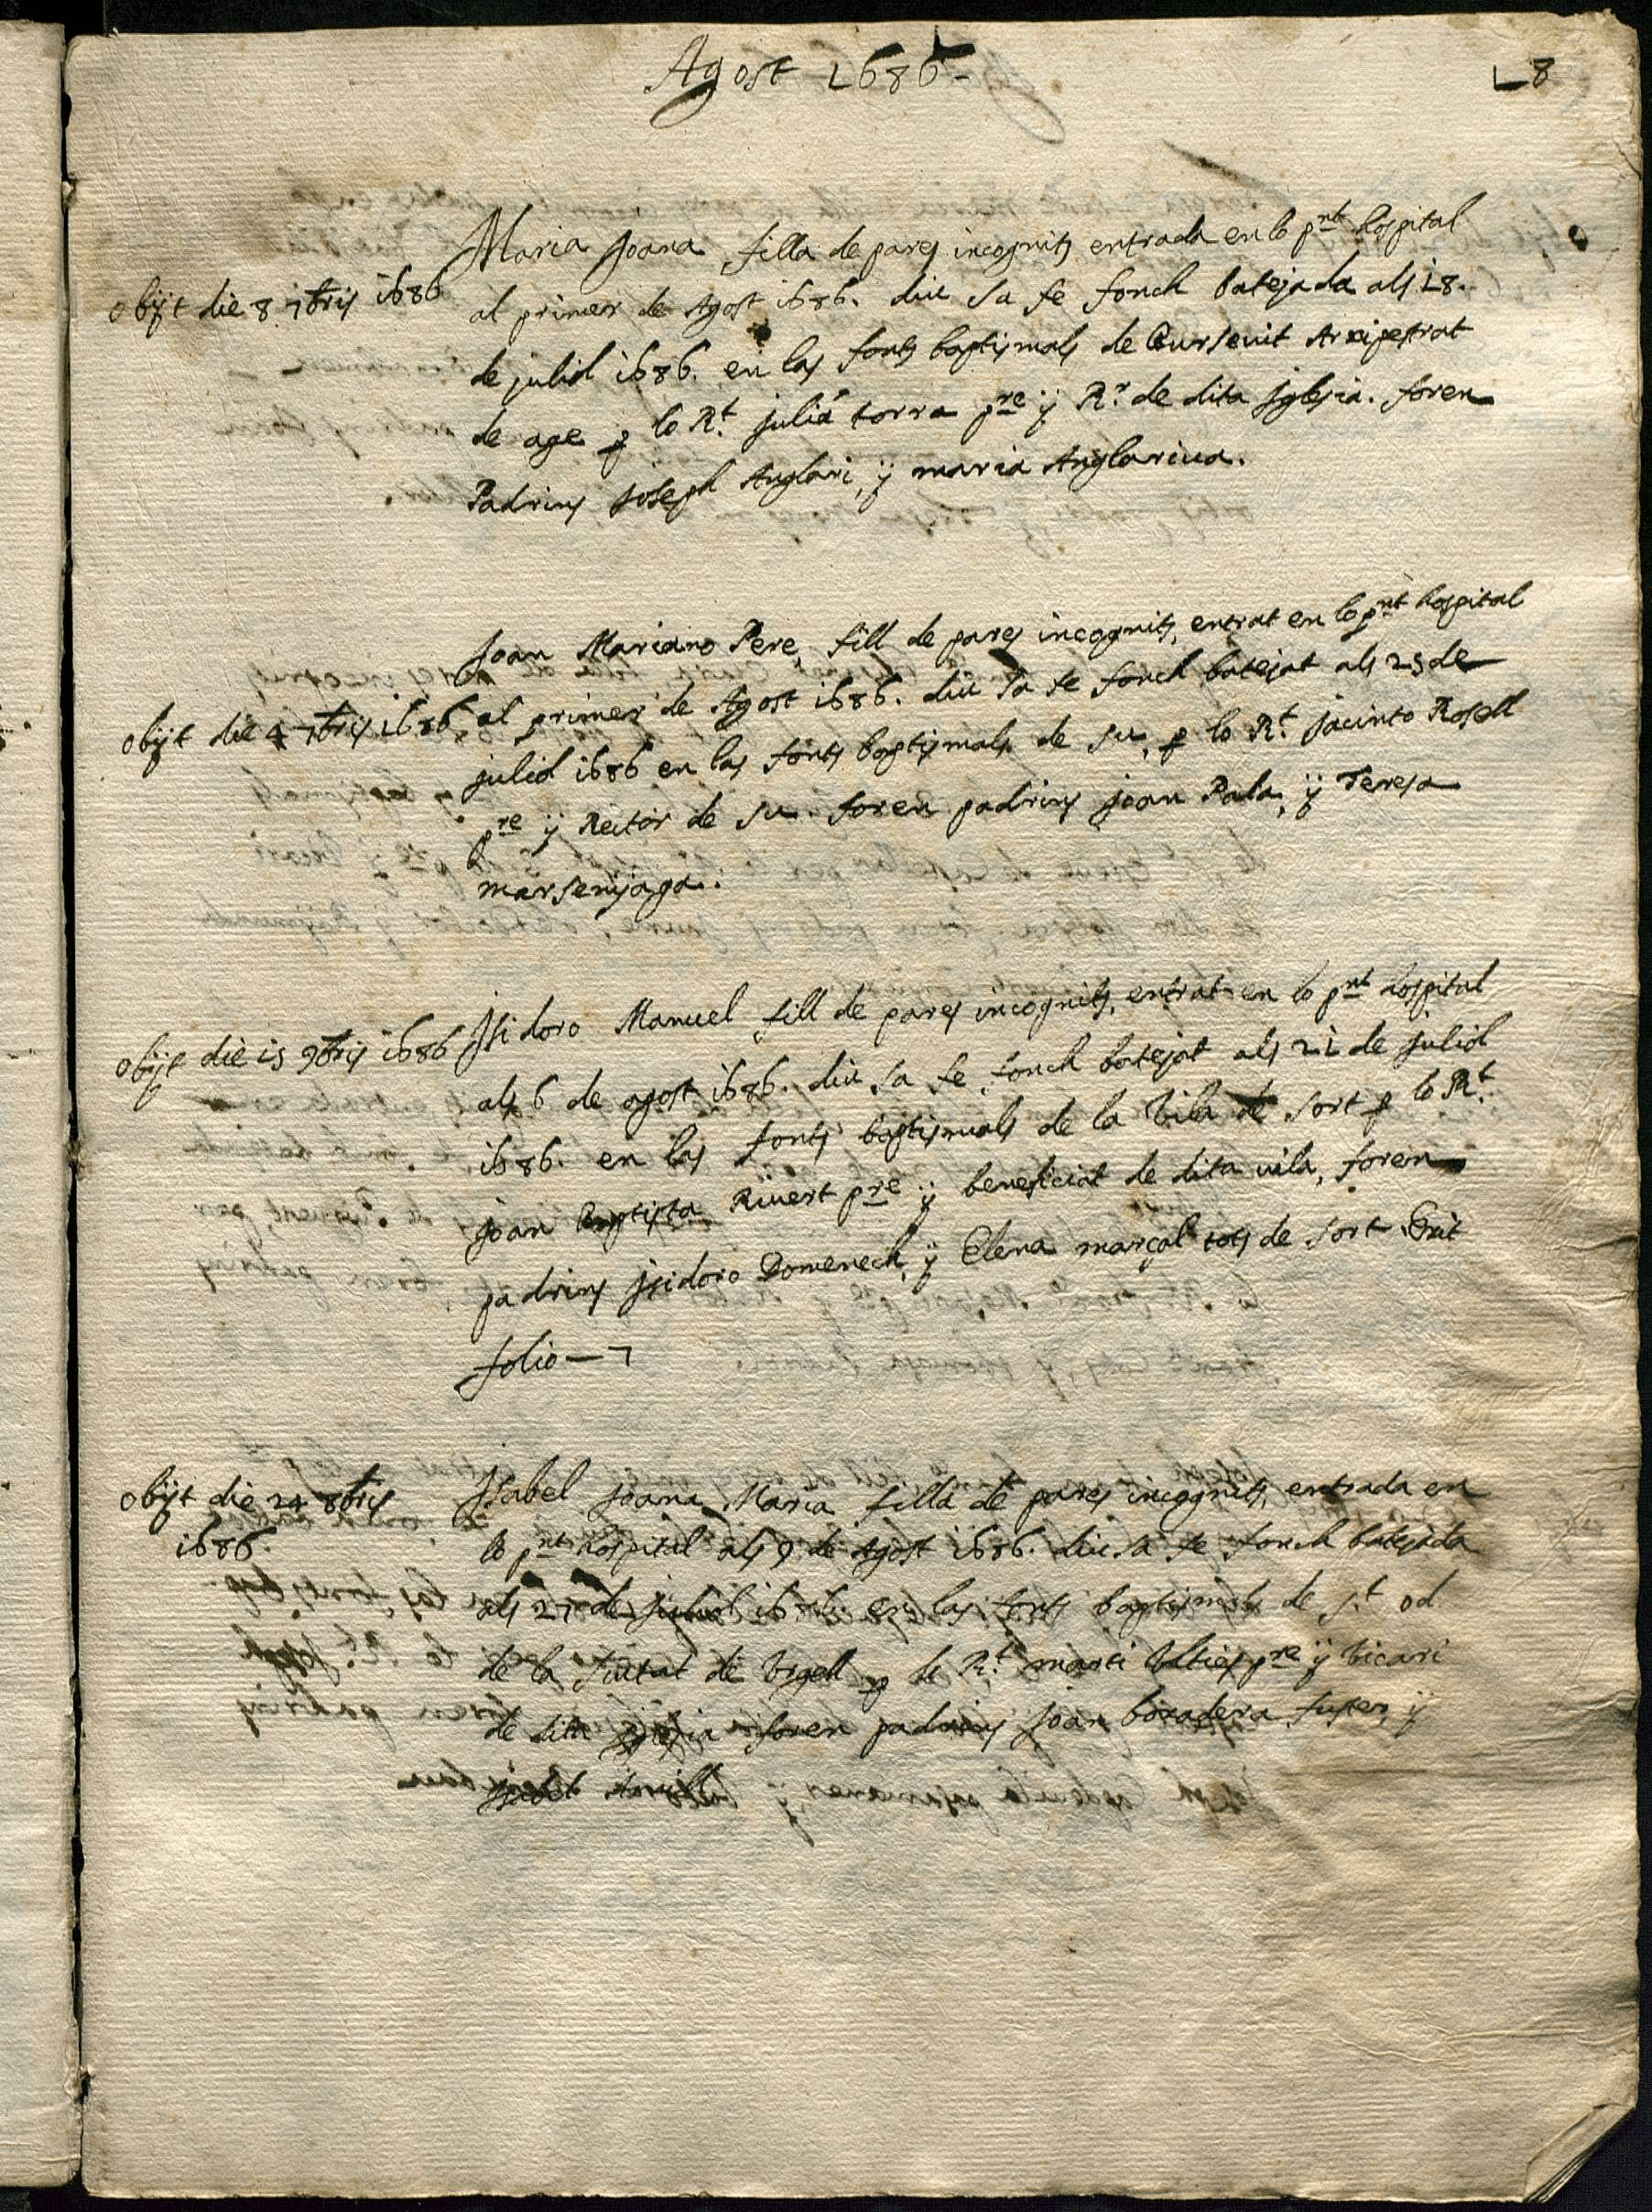 Agost 1686-
18
Maria Joana, filla de pares incognits entrada en lo pnt hospital
obijt die 8 7bris 1686
al primer de Agost 1686. diu sa fe fonch batejada als 18.
de juliol 1686. en las fonts baptismals de Arxipestrat
de age p lo Rt. juliá torra pre ÿ Rr. de dita Iglesia. foren
Padrins Joseph Anglari, ÿ maria Anglarina.
Joan Mariano Pere, fill de pares incognits, entrat en lo pnt hospital
obijt die 4 7bris 1686
al primer de Agost 1686. diu sa fe fonch batejat als 25 de
juliol 1686 en las fonts baptismals de su, p lo Rt. jacinto Rosell
pre ÿ Rector de su. foren padrins joan Pala, ÿ Teresa
marsenÿaga.
Isidoro Manuel fill de pares incognits, entrat en lo pnt hospital
obijt die 15 9bris 1686
als 6 de agost 1686. diu sa fe fonch batejat als 21 de juliol
1686. en las fonts baptismals de la Vila de sort p lo Rt.
joan Baptista Riuert pre ÿ beneficiat de dita vila, foren
padrins Isidoro Domenech, ÿ Elena marçal tots de sort
folio — 7
Isabel Joana Maria filla de pares incognits, entrada en
obijt die 24 8bris
1686.
lo pnt hospital als 9 de Agost 1686. diu sa fe fonch batejada
als 27 de juliol 1686. en las fonts baptismals de st. od
de la siutat de Vrgell p lo Rt. marti pre ÿ vicari
de dita Iglesia foren padrins joan boxadera fuster, ÿ